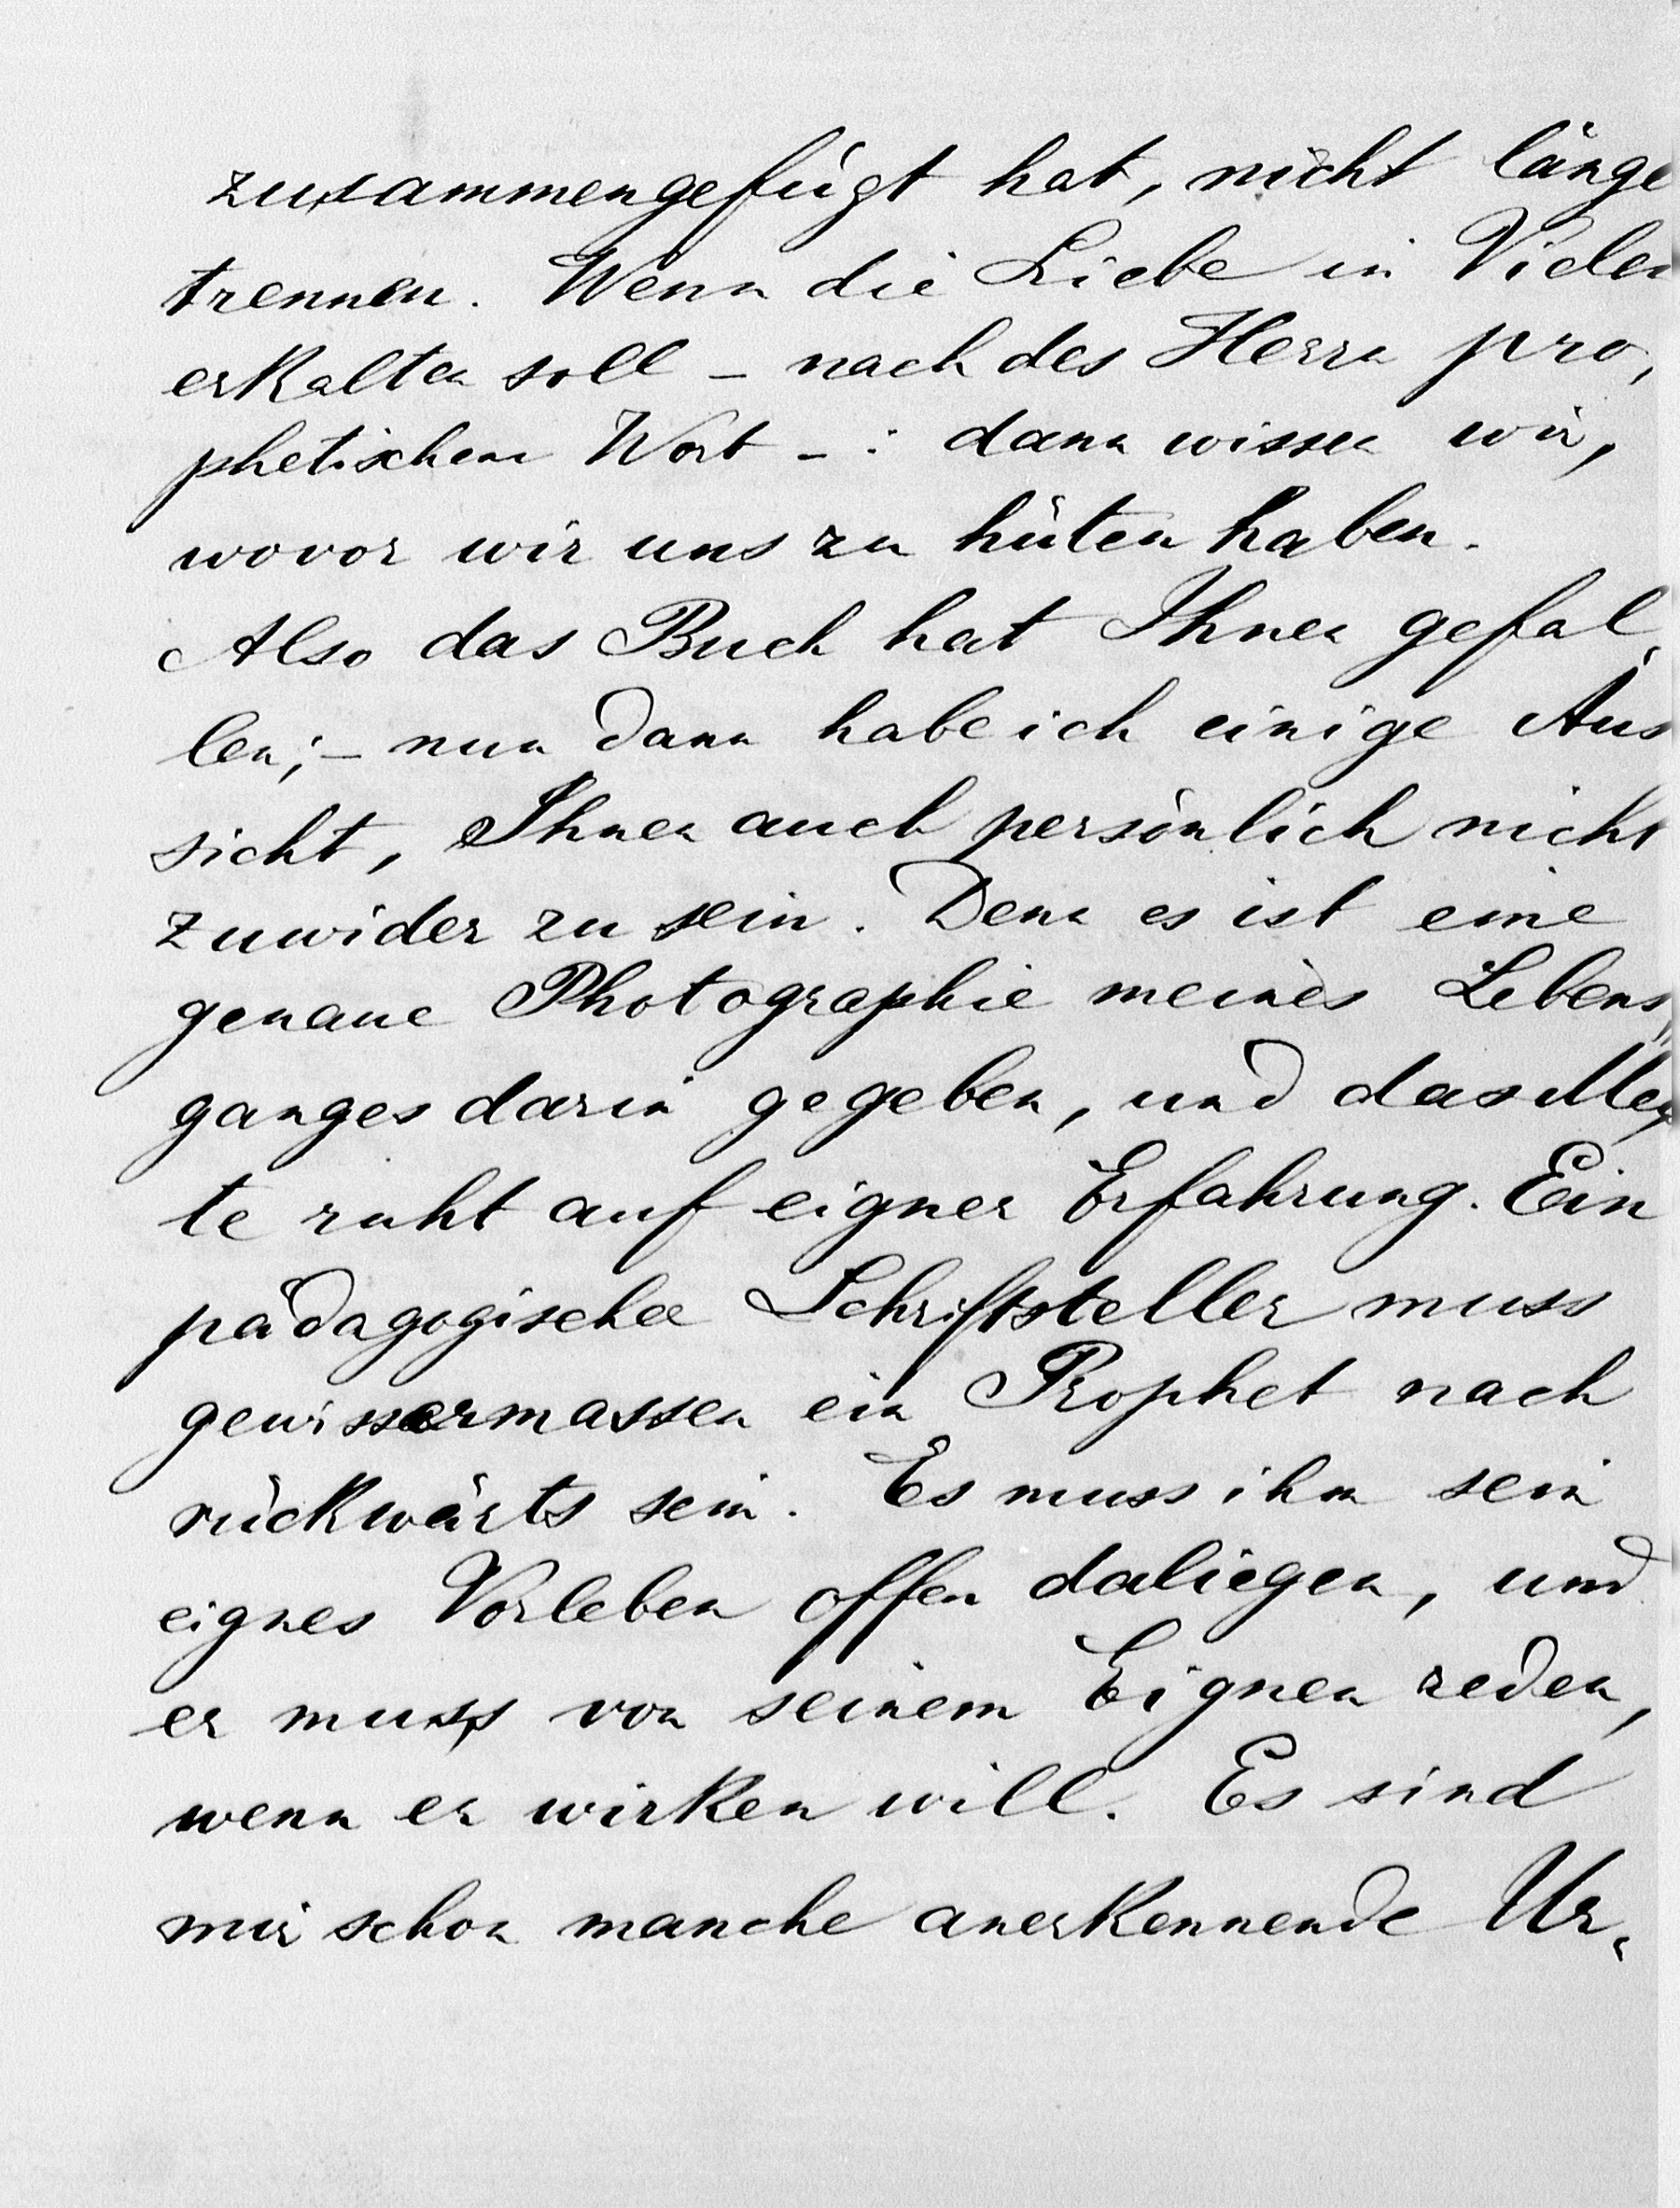 zusammengefügt hat, nicht länge
trennen. Wenn die Liebe in Vielen
erkalten soll – nach des Herrn pro,
phetischem Wort – : dann wissen wir,
wovor wir uns zu hüten haben.
Also das Buch hat Ihnen gefal,
len; – nun dann habe ich einige Aus
sicht, Ihnen auch persönlich nicht
zuwider zu sein. Denn es ist eine
genaue Photographie meines Lebens,
ganges darin gegeben, und das Meis
te ruht auf eigner Erfahrung. Ein
pädagogischer Schriftsteller muss
gewissermassen ein Prophet nach
rückwärts sein. Es muss ihm sein
eignes Vorleben offen daliegen, und
er muss von seinem Eignen reden,
wenn er wirken will. Es sind
mir schon manche anerkennende Ur,